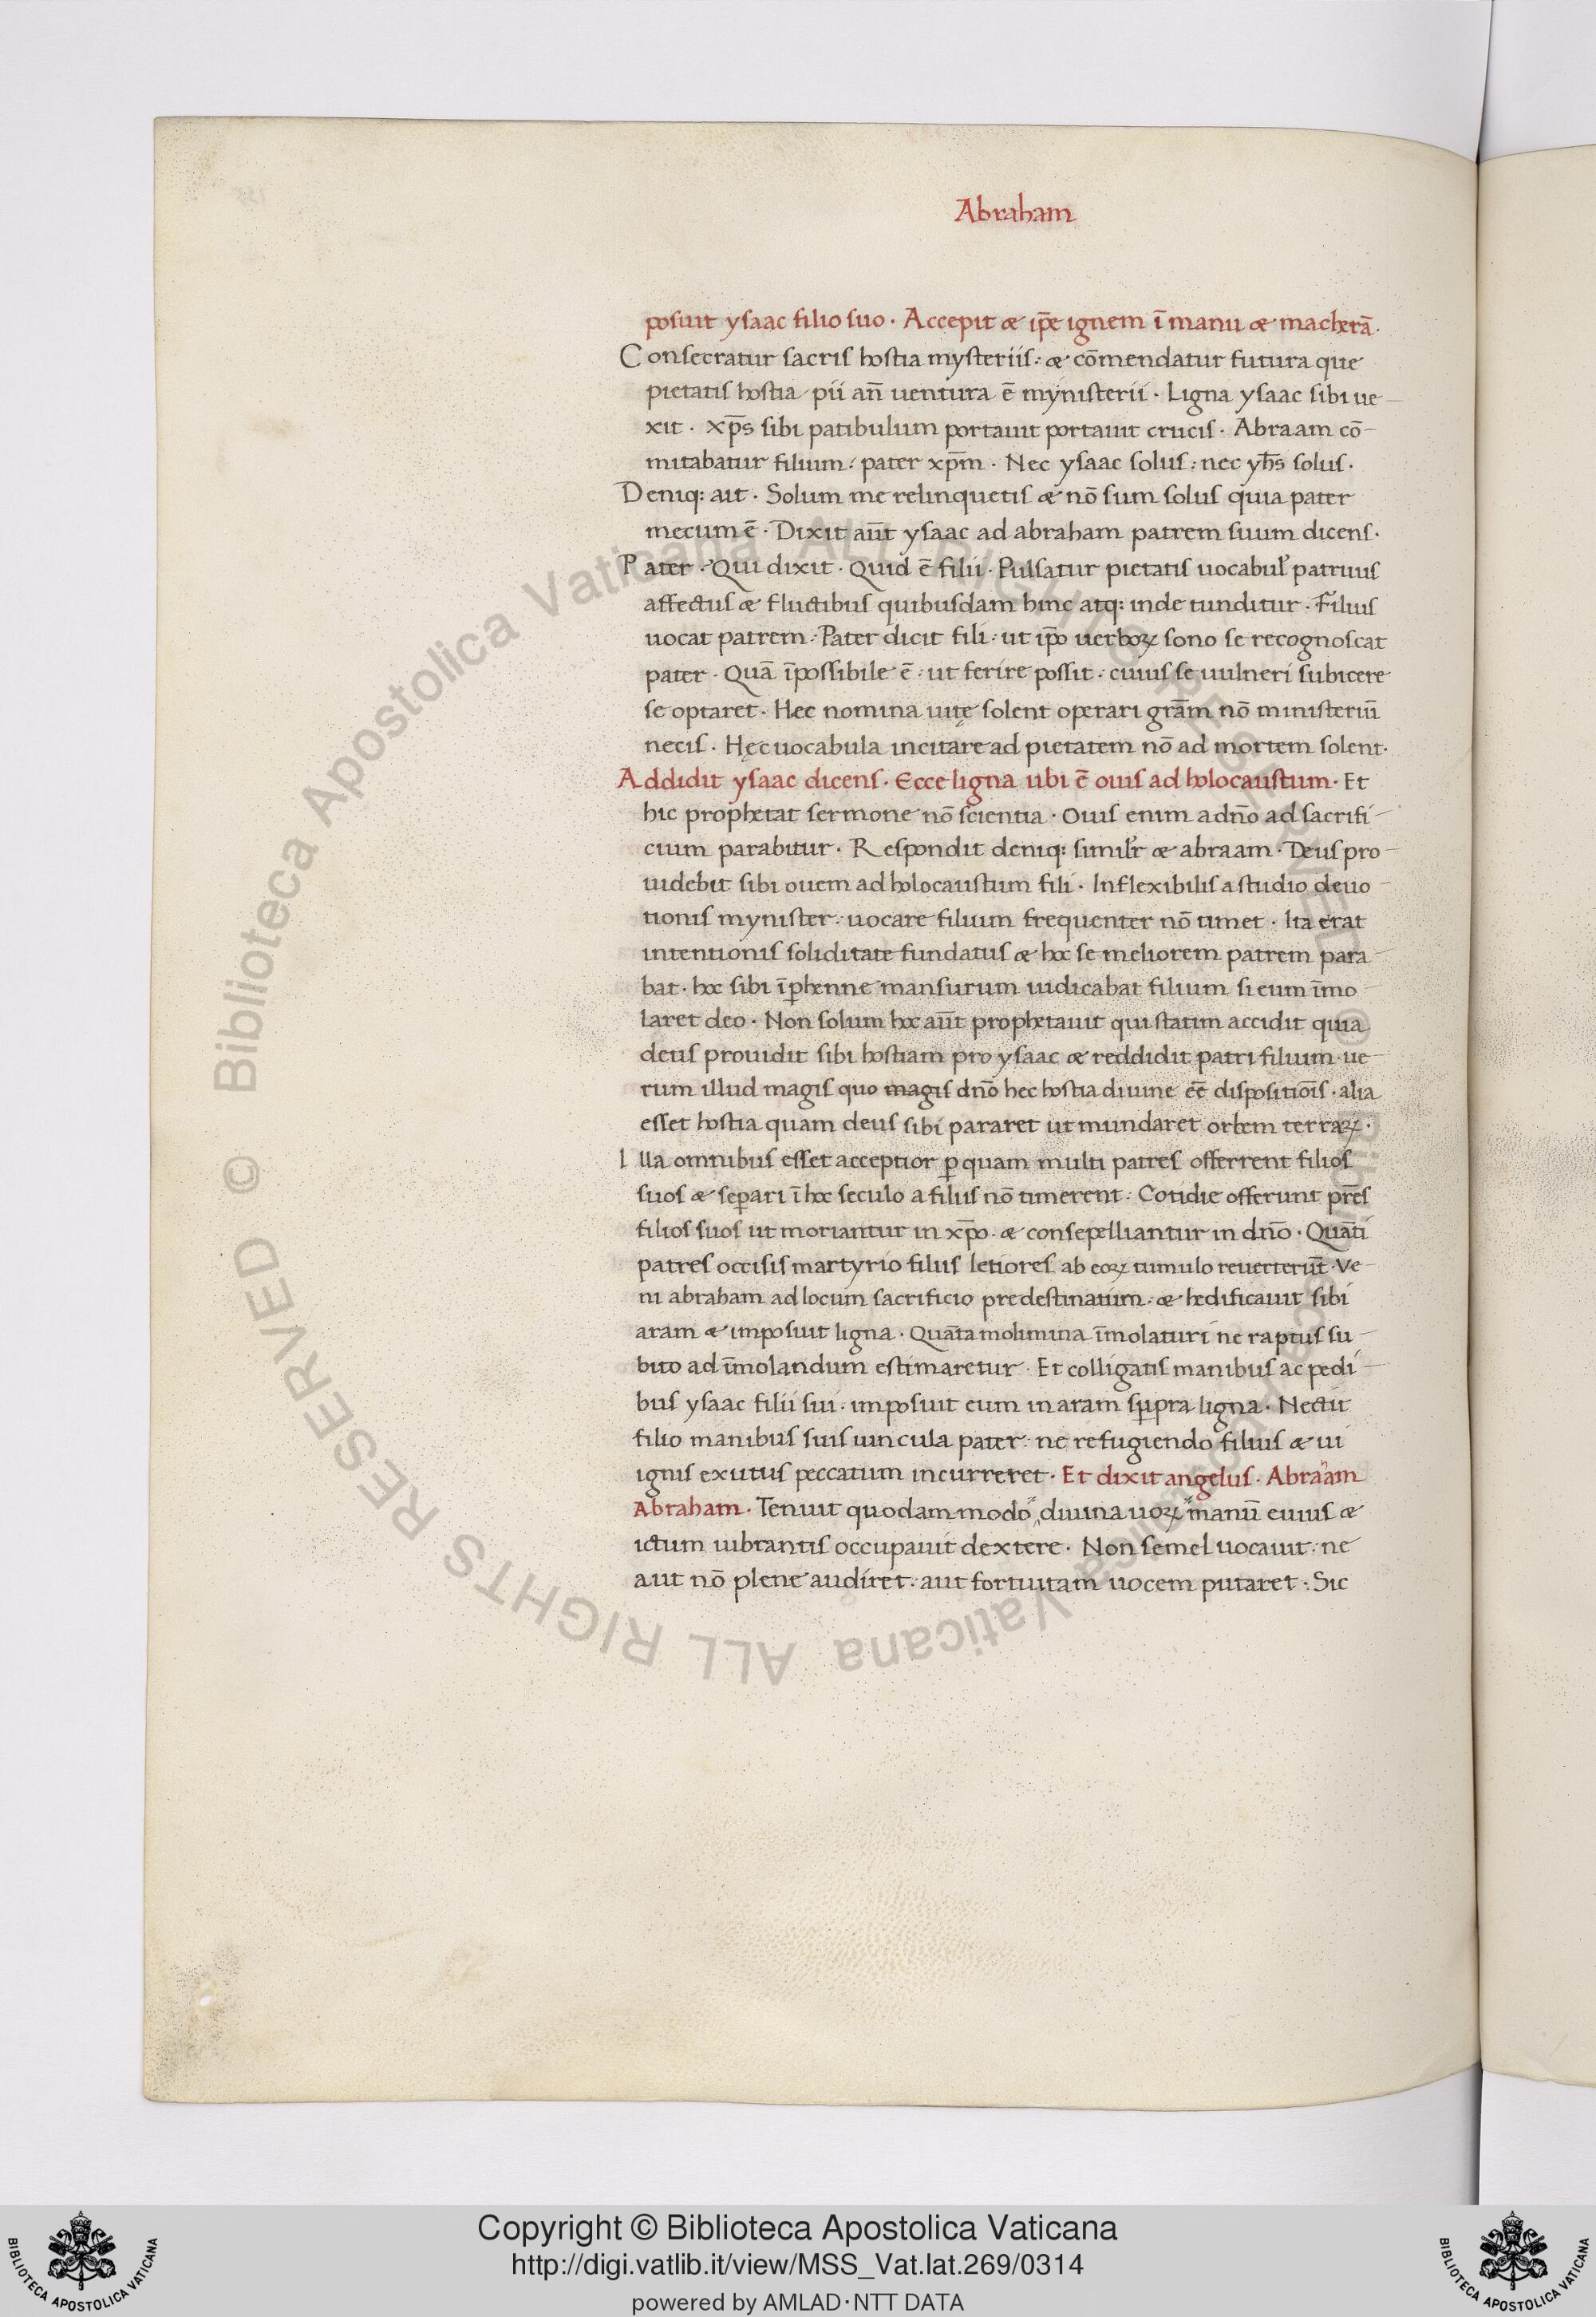 Abraham
posuit ysaac filio suo · Accepit æ ip̄e ignem ī manu æ macherā ·
Consecratur sacris hostia mysteriis : æ cōmendatur futura que
pietatis hostia pii an̄ uentura ē mynisterii · Ligna ysaac sibi ue-
xit · xp̄s sibi patibulum portauit portauit crucis · Abraam cō-
mitabatur filium : pater xp̄m · Nec ysaac solus : nec yh̄s solus ·
Deniq: ait · Solum me relinquetis æ nō sum solus quia pater
mecum ē · Dixit aūt ysaac ad abraham patrem suum dicens ·
Pater · Qui dixit · Quid ē filii · Pulsatur pietatis uocabul' patruus
affectus æ fluctibus quibusdam hinc atq: inde tunditur · Filius
uocat patrem : Pater dicit fili : ut ip̄o uerboꝝ sono se recognoscat
pater · Quā īpossibile ē : ut ferire possit : cuius se uulneri subicere
se optaret · Hec nomina uitę solent operari grām nō ministeriū
necis · Hęc uocabula incitare ad pietatem nō ad mortem solent ·
Addidit ysaac dicens · Ecce ligna ubi ē ouis ad holocaustum · Et
hic prophetat sermone nō scientia · Ouis enim a dn̄o ad sacrifi-
cium parabitur · Respondit deniq: simil'r æ abraam · Deus pro-
uidebit sibi ouem ad holocaustum fili · Inflexibilis a studio deuo-
tionis mynister : uocare filium frequenter nō timet · Ita erat
intentionis soliditate fundatus æ hoc se meliorem patrem para-
bat · hoc sibi īꝑhenne mansurum uidicabat filium si eum īmo-
laret deo · Non solum hoc aūt prophetauit qui statim accidit quia
deus prouidit sibi hostiam pro ysaac æ reddidit patri filium · ue-
rum illud magis quo magis dn̄o hec hostia diuine eē dispositiōis · alia
esset hostia quam deus sibi pararet ut mundaret orbem terraꝝ ·
Illa omnibus esset acceptior ꝑ quam multi patres offerrent filios
suos æ seꝑari ī hoc seculo a filiis nō timerent : Cotidie offerunt pr̄es
filios suos ut moriantur in xp̄o · æ consepelliantur in dn̄o · Quāti
patres occisis martyrio filiis letiores ab eoꝝ tumulo reuerterūt · Ve-
ni abraham ad locum sacrificio predestinatum : æ hedificauit sibi
aram æ imposuit ligna · Quāta molimina īmolaturi ne raptus su-
bito ad īmolandum estimaretur · Et colligatis manibus ac pedi-
bus ysaac filii sui · imposuit eum in aram sup̱ra ligna · Nectit
filio manibus suis uincula pater : ne refugiendo filius æ ui
ignis exutus peccatum incurreret · Et dixit angelus · Abraam
Abraham · Tenuit quodammodo diuina uoꝝ manū euius æ
ictum uibrantis occupauit dextere · Non semel uocauit : ne
aut nō plene audiret : aut fortuitam uocem putaret · Sic
© Biblioteca Apostolica Vaticana ALL RIGHTS RESERVED © Biblioteca Apostolica Vaticana ALL RIGHTS RESERVED
BIBLIOTECA APOSTOLICA VATICANA
Copyright © Biblioteca Apostolica Vaticana
http://digi.vatlib.it/view/MSS_Vat.lat.269/0314
powered by AMLAD·NTT DATA
BIBLIOTECA APOSTOLICA VATICANA